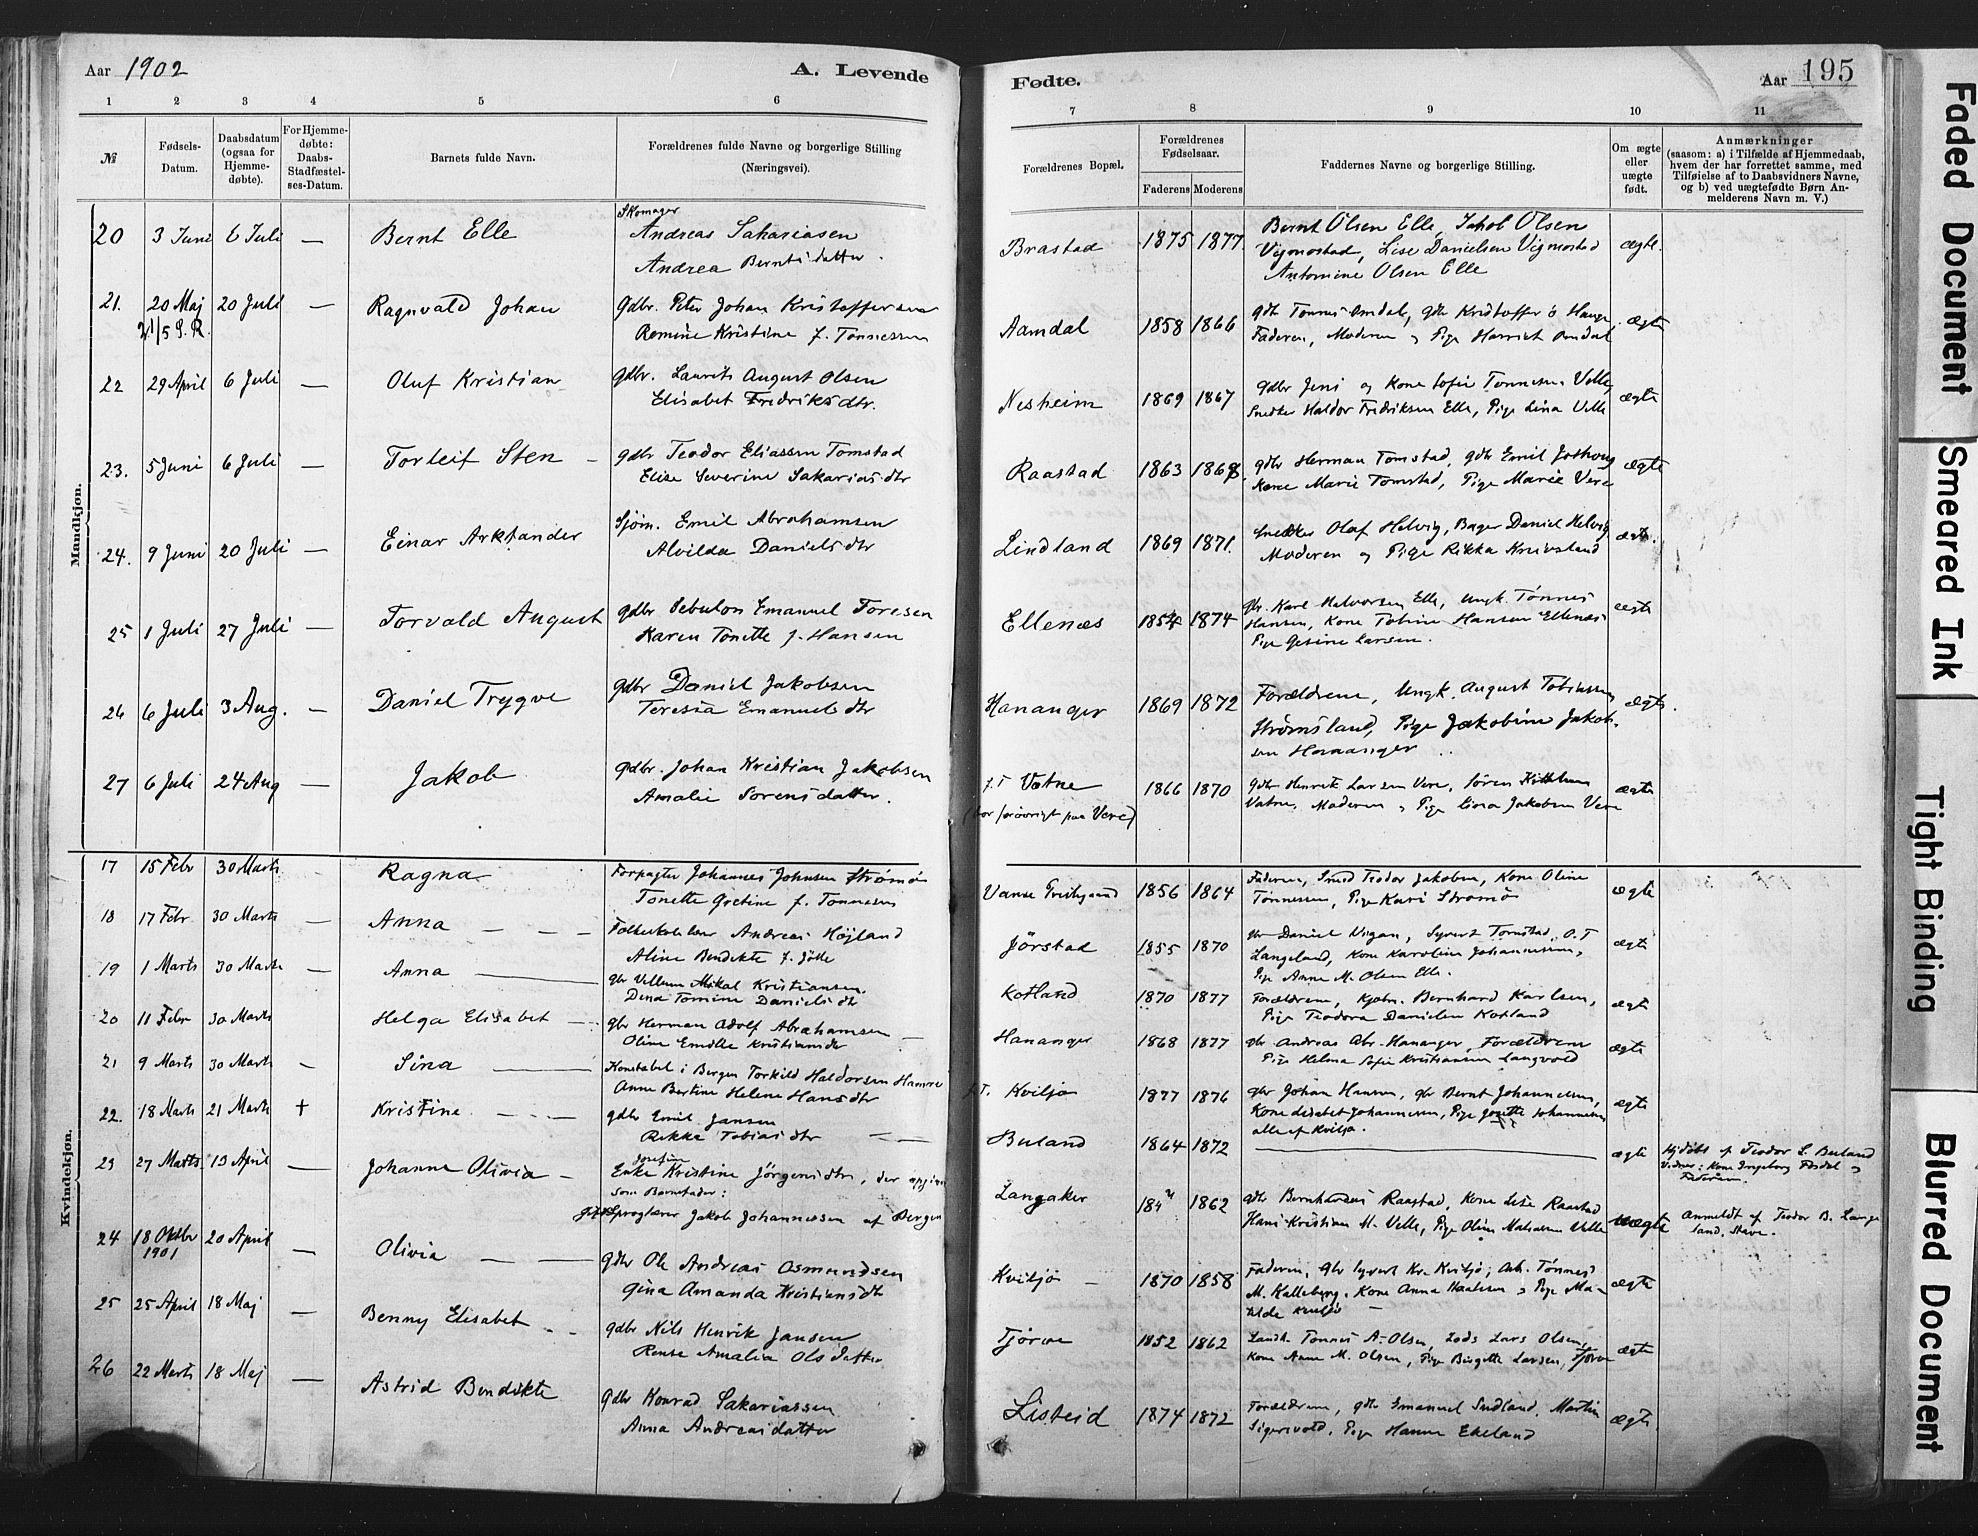 Aar 1902
A. Levende
Fødte.
Aar 195
1 2 3 4 5 6 7 8 9 10 11
№
Fødsels-
Datum.
Daabsdatum
(ogsaa for
Hjemme-
døbte).
For Hjemme-
døbte:
Daabs-
Stadfæstel-
ses-Datum.
Barnets fulde Navn.
Forældrenes fulde Navne og borgerlige Stilling
(Næringsvei).
Forældrenes Bopæl.
Forældrenes
Fødselsaar.
Faderens Moderens
Faddernes Navne og borgerlige Stilling.
Om ægte
eller
uægte
født.
Anmærkninger
(saasom: a) i Tilfælde af Hjemmedaab,
hvem der har forrettet samme, med
Tilføielse af to Daabsvidners Navne,
og b) ved uægtefødte Børn An-
melderens Navn m. V.)
Mandkjøn.
20 3 Juni 6 Juli — Bernt Elle
Skomager
Andreas Sakariasen
Andrea Berntsdatter.
Brastad 1875 1877
Bernt Olsen Elle, Jakob Olsen
Vigmostad, Lise Danielsen Vigmostad
Antomine Olsen Elle
ægte.
21. 20 Maj 20 Juli — Ragnvald Johan
21/5 S.R.
Gdbr. Peter Johan Kristoffersen
Romine Kristine f. Tønnessen
Aamdal 1858 1866
gdb Tønnes Omdal, gdb Kristoffer Hauge,
Faderen, Moderen og Pige Harriet Omdal
ægte
22 29 April 6 Juli — Oluf Kristian
gdbr. Laurits August Olsen
Elisabet Fredriksdtr.
Nesheim 1869 1867
gdbr Jens og Kone Sofie Tønnessen Velle,
Snedker Haldor Fredriksen Elle, Pige Lina Velle
ægte
23. 5 Juni 6 Juli — Torleif Sten
gdbr Teodor Eliassen Tomstad
Elise Severine Sakariasdtr
Raastad 1863 1868.
gdbr Herman Tomstad, gdbr Emil
Kone Marie Tomstad, Pige Marie Vere
ægte
24. 9 Juni 20 Juli — Einar Arktander
Sjøm. Emil Abrahamsen
Alvilda Danielsdtr
Lindland 1869 1871.
Snedker Olaf Helvig, Bager Daniel Helvig
Moderen og Pige Rikka Kneivsland
ægte.
25 1 Juli 27 Juli — Torvald August
gdbr Sebulon Emanuel Toresen
Karen Tonette f. Hansen
Ellenæs 1854 1874
gbr. Karl Halvorsen Elle, Ungk. Tønnes
Hansen, Kone Tobine Hansen Ellenæs
Pige Gesine Larsen.
ægte
26 6 Juli 3 Aug. — Daniel Trygve
gdbr Daniel Jakobsen
Teresia Emanuelsdtr
Hananger 1869 1872
Forældrene, Ungk. August Tobiassen
Strømsland, Pige Jakobine Jakob-
sen Hananger
ægte.
27 6 Juli 24 Aug — Jakob
gdbr. Johan Kristian Jakobsen
Amalie Sorensdatter.
f.T Vatne
(bor forøvrigt paa Vere)
1866 1870
gdbr Henrik Larsen Vere, Søren
Vatne, Moderen, Pige Lina Jakobsen Vere
ægte
Kvindekjøn.
17 15 Febr 30 Marts Ragna
Forpagter Johannes Johnsen Strømø
Tonette Gretine f. Tønnesen
Vanse Prestegaard 1856 1864
Faderen, Smed Teodor Jakobsen, Kone Oline
Tønnessen, Pige Kari Strømø
ægte
18 17 Febr. 30 Marts — Anna
Folkeskolelærer Andreas Højland
Aline Bendikte f.
Jørstad 1855 1870
gbr Daniel Vigan, Syvert Tomstad, O.T
Langeland, Kone Karoline Johannessen,
Pige Anne M. Olsen Elle.
ægte
19 1 Marts 30 Marts — Anna
gbr Vellum Mikal Kristiansen.
Dina Tomine Danielsdtr
Kotland 1870 1877
Forældrene, Kjøbm. Bernhard Karlsen,
Pige Teodora Danielsen Kotland
ægte
20 11 Febr 30 Marts Helga Elisabet
gbr Herman Adolf Abrahamsen
Oline Emilie Kristiansdtr
Hananger 1868 1877
gbr Andreas Abr. Hananger, Forældrene
Pige Helma Sofie Kristiansen Langvold
ægte
21 9 Marts 30 Marts — Sina
Konstabel i Bergen Torkild Haldorsen Hamre
Anne Bertine Helene Hansdtr
f.T. Kviljo 1877 1876
gbr Johan Hansen, gbr Bernt Johannessen,
Kone Elisabet Johannessen, Pige Josette Johannessen
alle af Kviljo.
ægte
22. 18 Marts 21 Marts + Kristine
gdbr Emil Jansen
Rikka Tobiasdtr
Buland 1864 1872
ægte
Hjdøbt af Teodor L. Buland
Vidner: Kone Ingeborg
Faderen.
23 27 Marts 13 April — Johanne Olivia
Josefine
Enke Kristine Jörgensdtr, der opgiver
som Barnefader:
Gift Sproglærer Jakob Johannessen af Bergen
Langaker 184 1862
gdbr Bernhardus Raastad, Kone Lise Raastad
Hans Kristian H. Velle, Pige Oline Velle
uægte
Anmeldt af Teodor B. Lange
land, Stave.
24 18 Oktbr 20 April — Olivia
1901
gdbr Ole Andreas Osmundsen
Gina Amanda Kristiansdtr
Kviljo 1870 1858
Faderen, gbr Syvert Kr. Kviljo, Arb. Tønnes
M. Kalleberg, Kone Anna, Pige Ma-
tilde Kviljo
ægte
25 25 April 18 Maj — Benny Elisabet
gdbr Nils Henrik Jansen
Rense Amalia Olsdatter
Tjørve 1852 1862
Landh. Tønnes A. Olsen, Lods Lars Olsen,
Kone Anne M. Olsen, Pige Birgitte Larsen, Tjørve
ægte
26 22 Marts 18 Maj — Astrid Bendikte
gdbr Konrad Sakariassen
Anna Andreasdatter
Listeid 1874 1872
Forældrene, gdbr Emanuel Sudland, Martin
Sigersvold, Pige Hanne Ekeland
ægte.
Faded Document
Smeared Ink
Tight Binding
Blurred Document